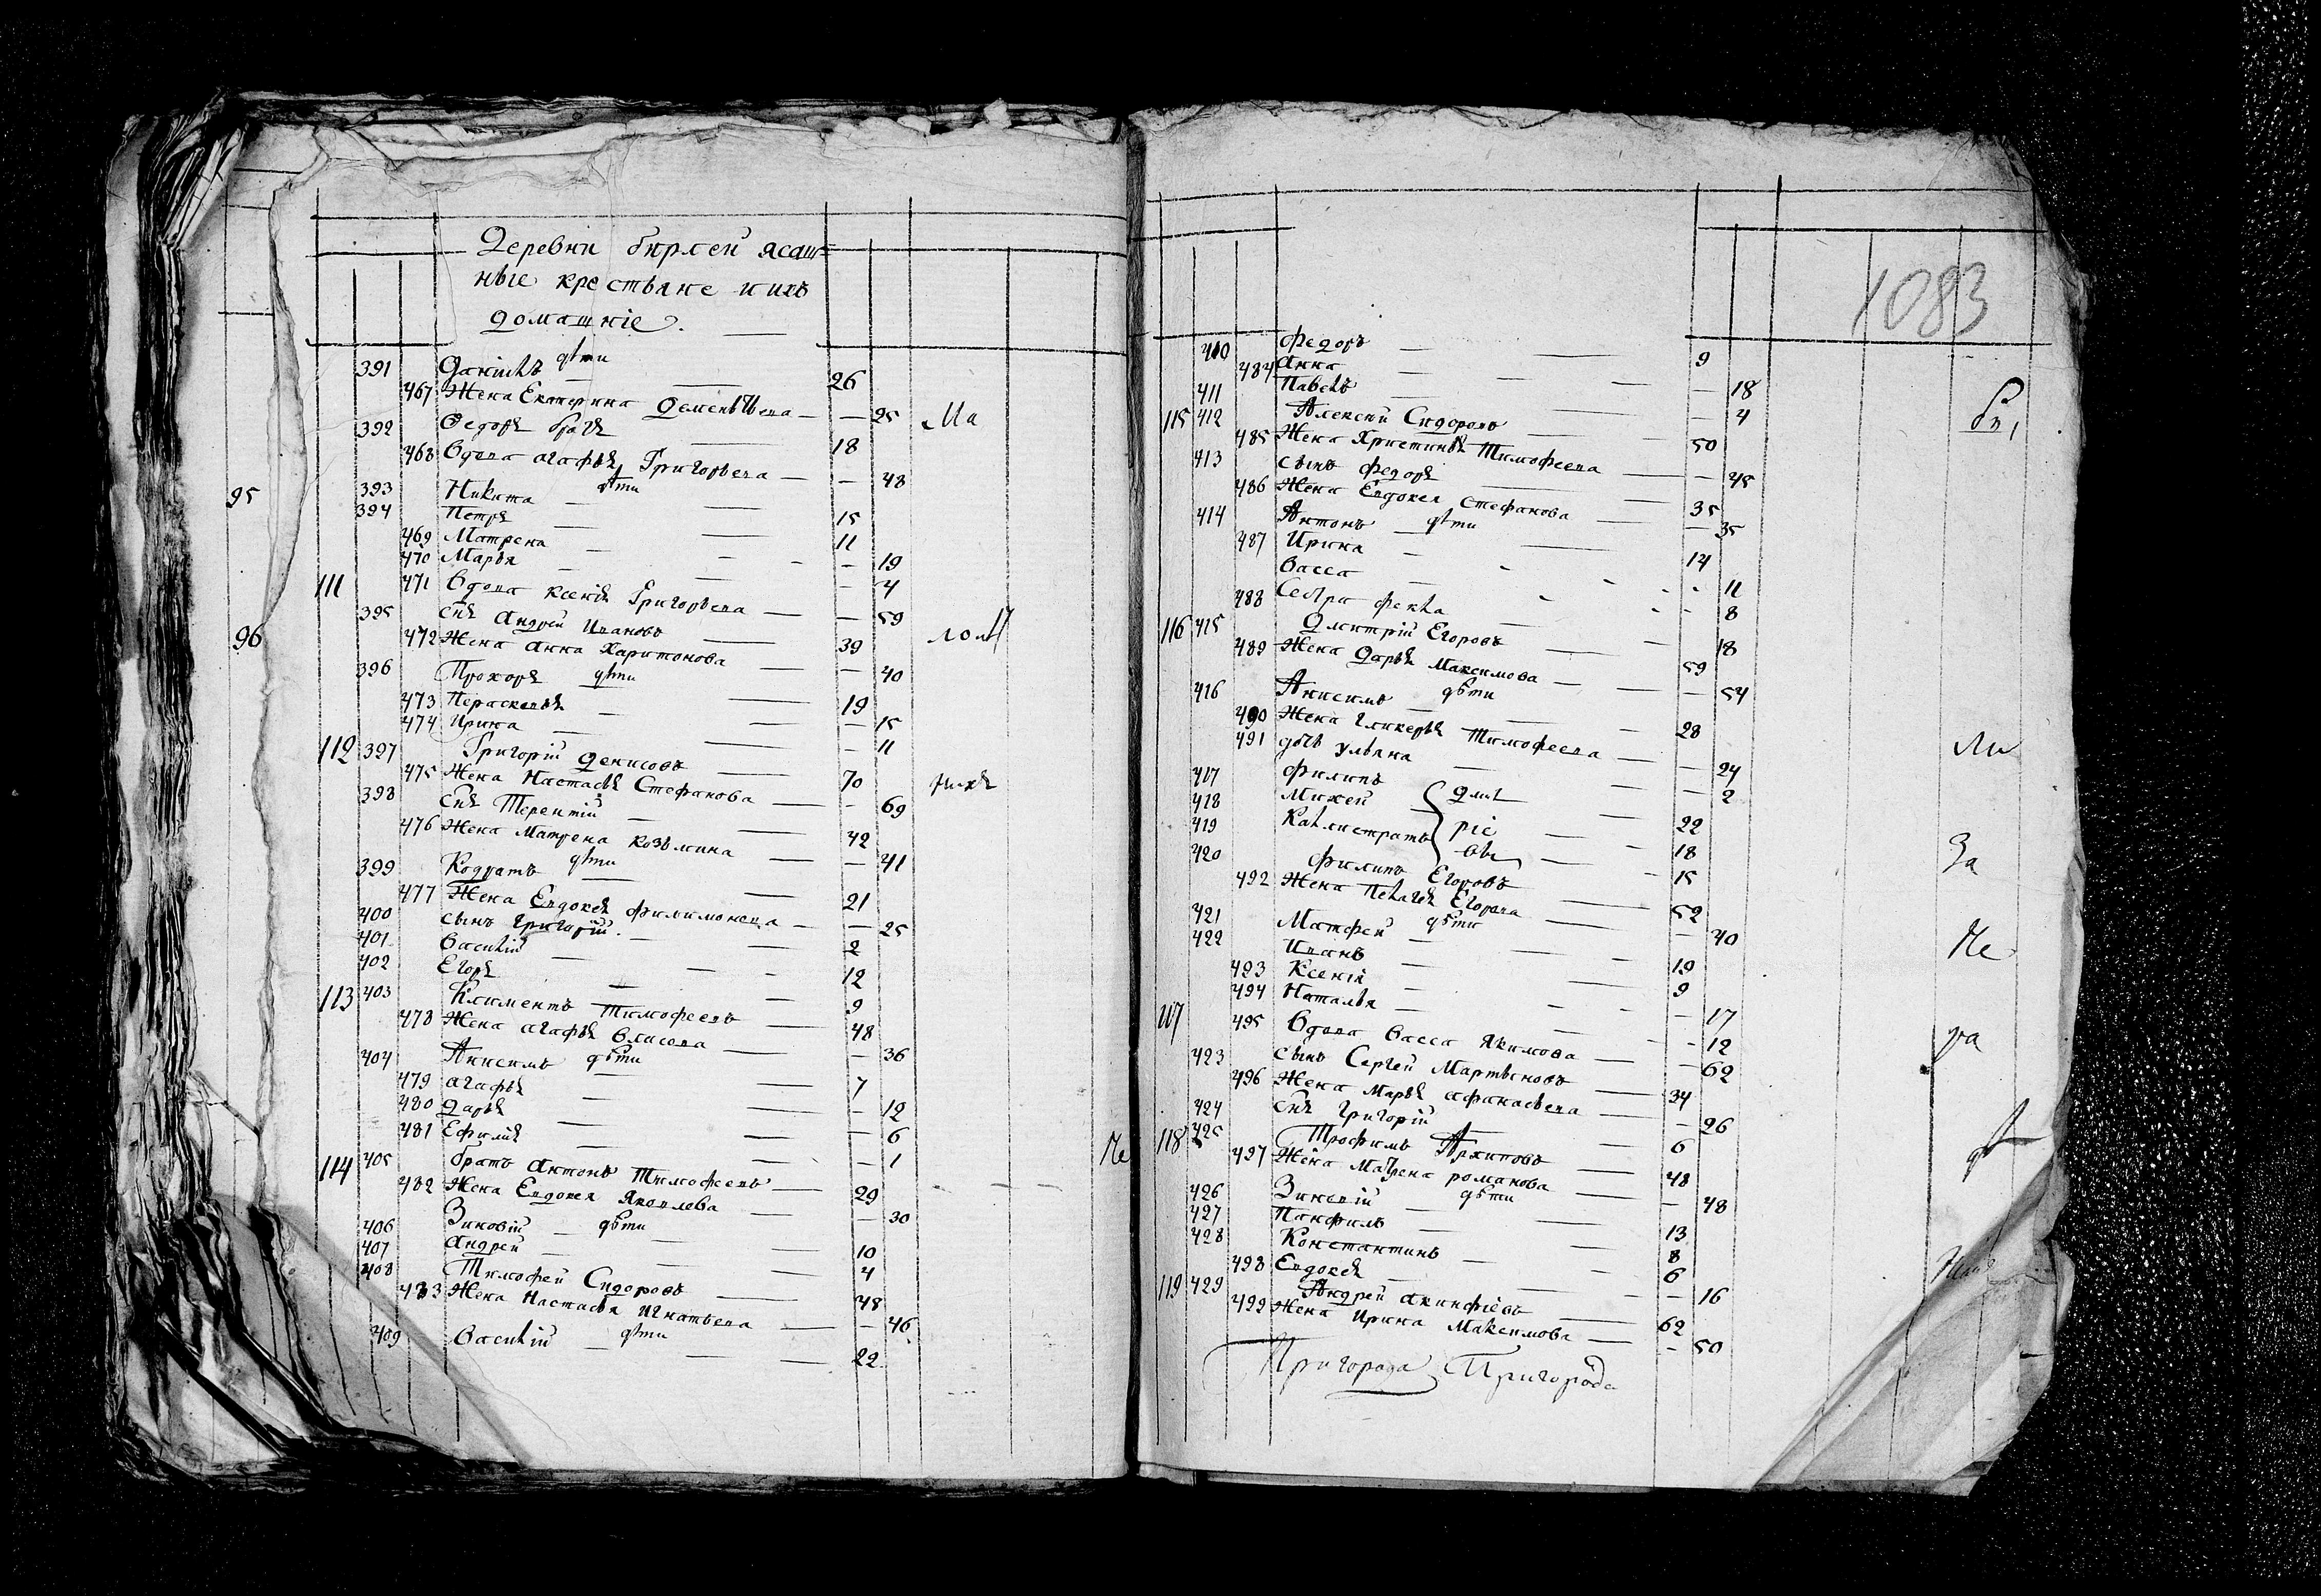 Деревни бирлей ясаш=
ные крестьяне и ихъ
домашніе.
дѣти
391 Данилъ 26
467 Жена Екатерина Дементьева 25
392 Федоръ братъ 18
468 Вдова агафья Григорьева 48
дѣти
95 393 Никита 15
394 Петръ 11
469 Матрена 19
470 Марья 4
111 471 Вдова ксенія Григорьева 59
395 снъ Андрей Ивановъ 39
96 472 Жена анна Харитонова 40
396 Прохоръ дѣти 19
473 Пераскевья 15
474 Ирина 11
112 397 Григорій Денисовъ 70
475 Жена Настасья Стефанова 69
398 снъ Терентій 42
476 Жена Матрена козьмина 41
399 Кодратъ дѣти 21
477 Жена Евдокея филимонова 25
400 сынъ григорій 2
401 Василій 12
402 Егоръ 9
113 403 Климентъ Тимофеевъ 48
478 Жена агафья Власова 36
404 Анисимъ дѣти 7
479 агафья 12
480 дарья 6
481 Ефимія 1
114 405 братъ антонъ Тимофеевъ 29
482 Жена Евдокея Яковлева 30
406 Зиновій дѣти 10
407 андрей 4
408 Тимофей Сидоровъ 48
483 Жена Настасья Игнатьева 46
409 Василій дѣти 22
1083
410 федоръ 9
484 Анна 18
411 Павелъ 4
115 412 Алексей Сидоровъ 50
485 Жена Христинья Тимофеева 45
413 сынъ федоръ 35
486 Жена Евдокея Стефанова 35
414 Антонъ дѣти 14
487 Ирина 11
Васса 8
488 Сестра фекла 18
116 415 Дмитрій Егоровъ 59
489 Жена Дарья Максимова 54
416 Анисимъ дѣти 28
490 Жена гликерья Тимофеева 24
491 дочь ульяна 2
417 филипъ 22
418 Михей Дмит 18
419 Каллистратъ ріе 15
вы
420 филипъ Егоровъ 52
492 Жена Пелагея Егорова 40
421 Матфей дѣти 19
422 Иванъ 9
493 Ксенія 17
494 Наталья 12
117 495 Вдова Васса Якимова 62
423 сынъ Сергей Мартыновъ 34
496 Жена Марья афанасьева 26
424 снъ григорій 6
118 425 Трофимъ Архиповъ 48
497 Жена Матрена романова 48
426 Зиновій дѣти 13
427 Панфилъ 8
428 Константинъ 6
498 Евдокея 16
119 429 Андрей акинфіевъ 62
499 Жена Ирина Максимова 50
Пригорода Пригорода